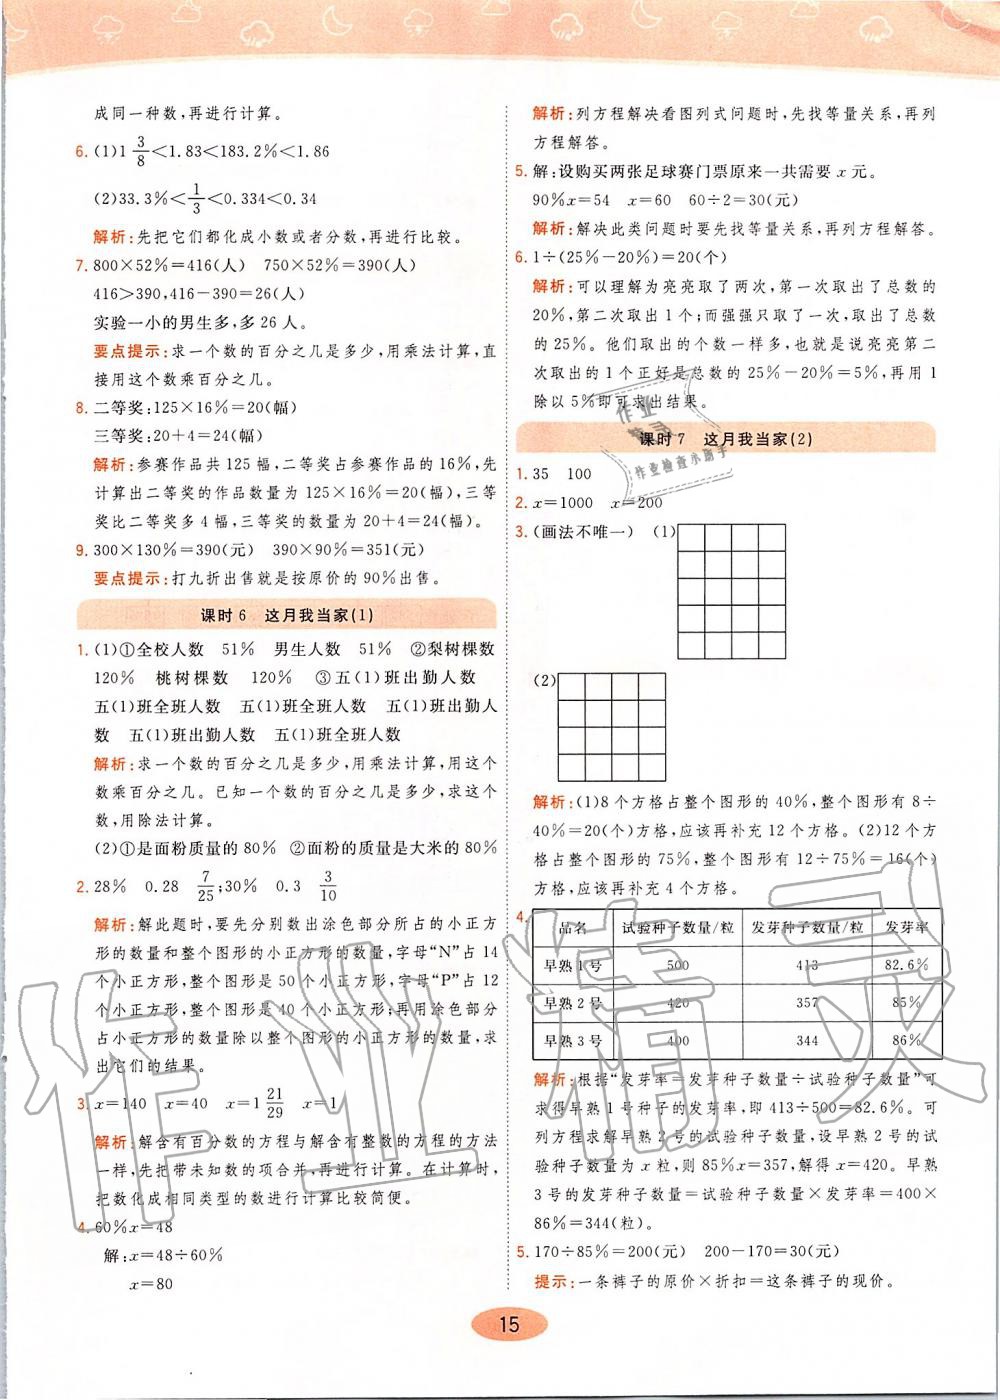 成同一种数,再进行计算。
6. (1)1 3/8<1.83<183.2%<1.86
(2)33.3%<1/3<0.334<0.34
解析:先把它们都化成小数或者分数,再进行比较。
7. 800×52%=416(人) 750×52%=390(人)
416>390,416-390=26(人)
实验一小的男生多,多26人。
要点提示:求一个数的百分之几是多少,用乘法计算,直
接用这个数乘百分之几。
8. 二等奖:125×16%=20(幅)
三等奖:20+4=24(幅)
解析:参赛作品共125幅,二等奖占参赛作品的16%,先
计算出二等奖的作品数量为125×16%=20(幅),三等
奖比二等奖多4幅,三等奖的数量为20+4=24(幅)。
9. 300×130%=390(元) 390×90%=351(元)
要点提示:打九折出售就是按原价的90%出售。
课时6 这月我当家(1)
1. (1)①全校人数 51% 男生人数 51% ②梨树棵数
120% 桃树棵数 120% ③五(1)班出勤人数
五(1)班全班人数 五(1)班全班人数 五(1)班出勤人
数 五(1)班出勤人数 五(1)班全班人数
解析:求一个数的百分之几是多少,用乘法计算,用这个
数乘百分之几。已知一个数的百分之几是多少,求这个
数,用除法计算。
(2)①是面粉质量的80% ②面粉的质量是大米的80%
2. 28% 0.28 7/25;30% 0.3 3/10
解析:解此题时,要先分别数出涂色部分所占的小正方
形的数量和整个图形的小正方形的数量,字母“N”占14
个小正方形,整个图形是50个小正方形,字母“P”占12
个小正方形,整个图形是40个小正方形;再用涂色部分
占小正方形的数量除以整个图形的小正方形的数量,求
出它们的结果。
3. x=140 x=40 x=1 21/29 x=1
解析:解含有百分数的方程与解含有整数的方程的方法
一样,先把带未知数的项合并,再进行计算。在计算时,
把数化成相同类型的数进行计算比较简便。
4. 60%x=48
解:x=48÷60%
x=80
解析:列方程解决看图列式问题时,先找等量关系,再列
方程解答。
5. 解:设购买两张足球赛门票原来一共需要x元。
90%x=54 x=60 60÷2=30(元)
解析:解决此类问题时要先找等量关系,再列方程解答。
6. 1÷(25%-20%)=20(个)
解析:可以理解为亮亮取了两次,第一次取出了总数的
20%,第二次取出1个;而强强只取了一次,取出了总数
的25%。他们取出的个数一样多,也就是说亮亮第二
次取出的1个正好是总数的25%-20%=5%,再用1
除以5%即可求出结果。
课时7 这月我当家(2)
1. 35 100
2. x=1000 x=200
3. (画法不唯一) (1)
(2)
解析:(1)8个方格占整个图形的40%,整个图形有8÷
40%=20(个)方格,应该再补充12个方格。(2)12个方
格占整个图形的75%,整个图形有12÷75%=16(个)
方格,应该再补充4个方格。
4.
品名 试验种子数量/粒 发芽种子数量/粒 发芽率
早熟1号 500 413 82.6%
早熟2号 420 357 85%
早熟3号 400 344 86%
解析:根据“发芽率=发芽种子数量÷试验种子数量”可
求得早熟1号种子的发芽率,即413÷500=82.6%。可
列方程求解早熟2号的试验种子数量,设早熟2号的试
验种子数量为x粒,则85%x=357,解得x=420。早熟
3号的发芽种子数量=试验种子数量×发芽率=400×
86%=344(粒)。
5. 170÷85%=200(元) 200-170=30(元)
提示:一条裤子的原价×折扣=这条裤子的现价。
15
作业精灵
作业检查小助手